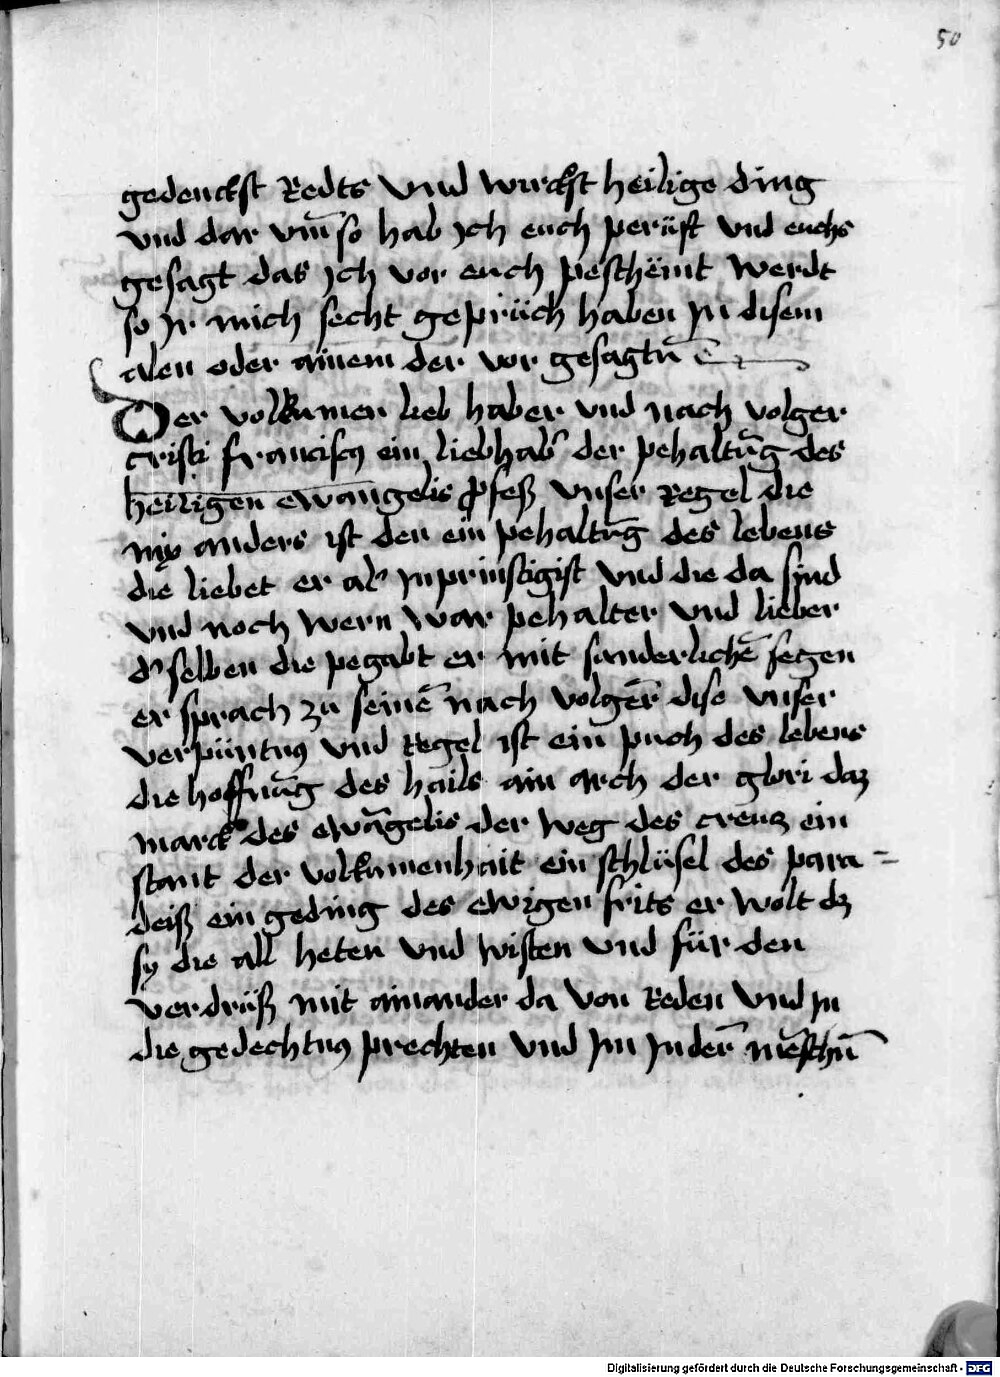 50
gedenckst Redts vnd wurckst heilige ding
vnd dar vm̄ so hab ich euch perüft vnd euchs
gesagt das ich vor euch peschëmt werdt
so Ir mich secht geprüch haben In disem
alen oder ainem der vor gesagtn̄
Der volkumen lieb haber vnd nach volger
cristi franciscꝫ ein liebhabʾ der pehaltūg des
heiligen ewangelis ꝓfesß vnser Regel die
anders ist den ein pehaltūg des lebens
die liebet er alʾ Inprünstigist vnd die da sind
vnd noch wern war pehalter vnd lieber
dʾ selben die pegabt er mit sunderlichē segen
er sprach zu seinē nach volgēr dise vnser
verpüntnꝫ vnd regel ist ein puch des lebens
die hoffnūg des hails ain arch der glori daz
marck des ewāgelis der weg des creucz ein
stant der volkumenhait ein schlüsel des para=
deiß ein geding des ewigen frits er wolt dz
sy die all heten vnd wisten vnd für den
verdrüß mit ainander da von reden vnd In
die gedechtnꝫ prechten vnd Im Inder̄ mēschn̄
Digitalisierung gefördert durch die Deutsche Forschungsgemeinschaft - DFG